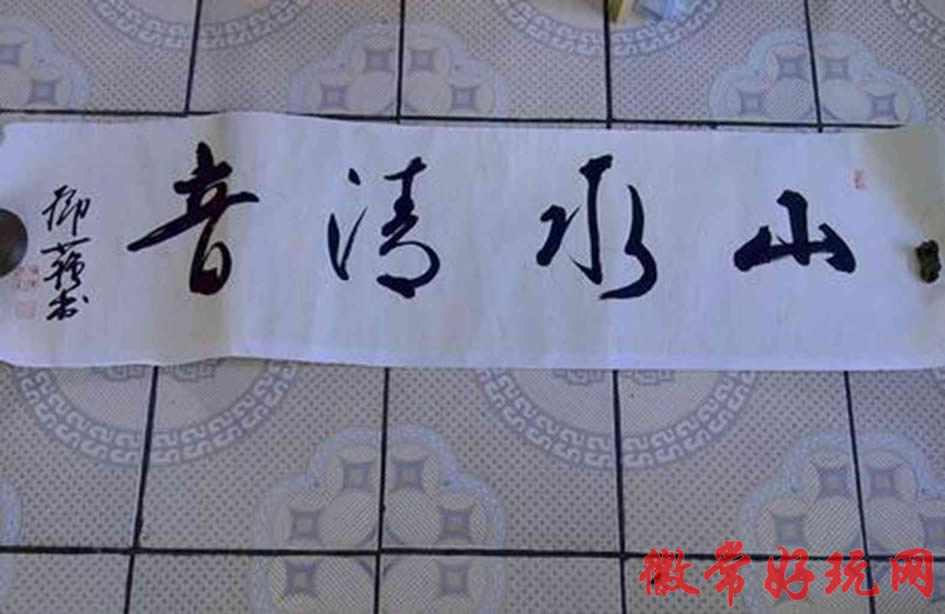 山水清音
徽常好玩网